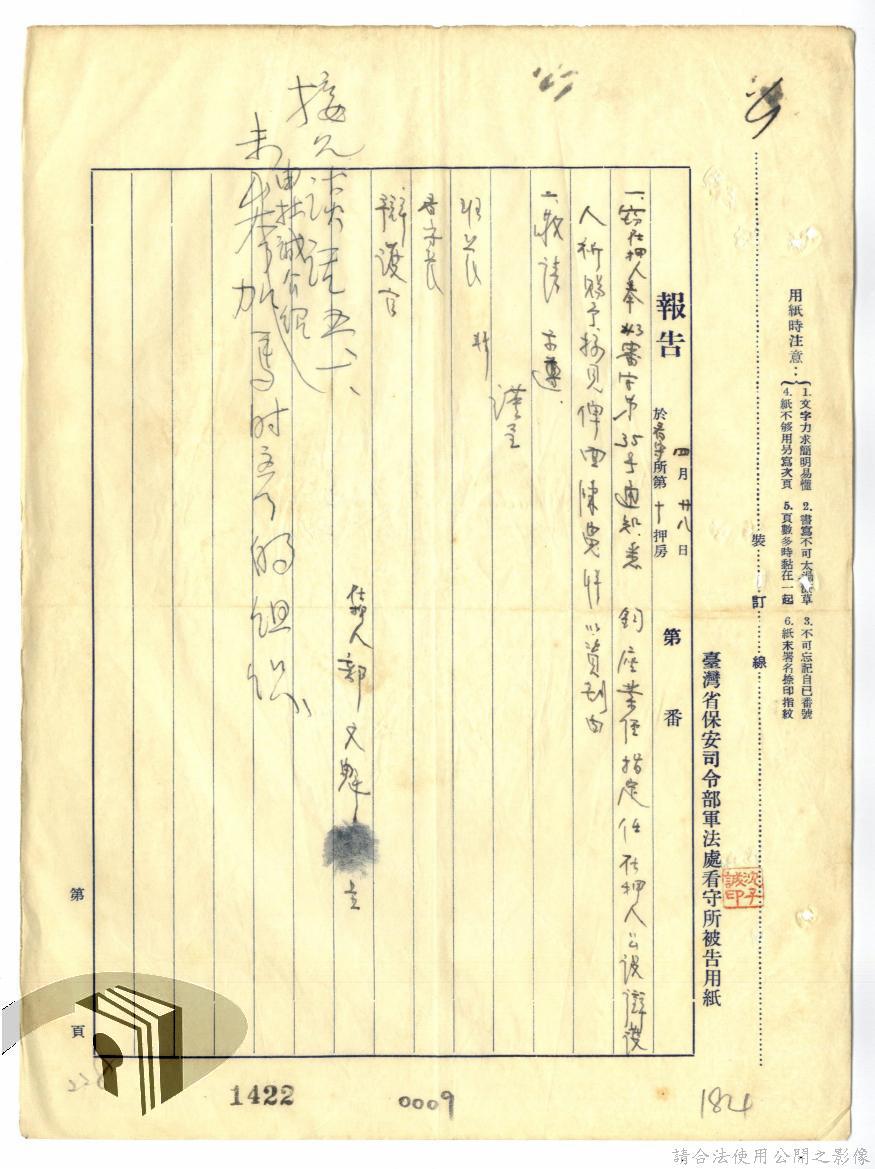 用紙時注意：
1.文字力求簡明易懂 2.書寫不可太過潦草 3.不可忘記自己番號
4.紙不够用另寫次頁 5.頁數多時黏在一起 6.紙末署名捺印指紋
裝 訂 線
臺灣省保安司令部軍法處看守所被告用紙
沈子誠印
報告 四月廿八日 於看守所第十押房 第 番
一、竊在押人奉 審字第35号通知悉 鈞座業經指定任在押人公設辯護
人祈賜予接見俾面陳 以資 由
二、敬請
謹呈
所長 轉
看守長
辯護官
在押人 文魁
接見談話五、一、
由杜誠介紹
未參加馬时彥的組织
第 頁
1422
0009
184
請合法使用公開之影像